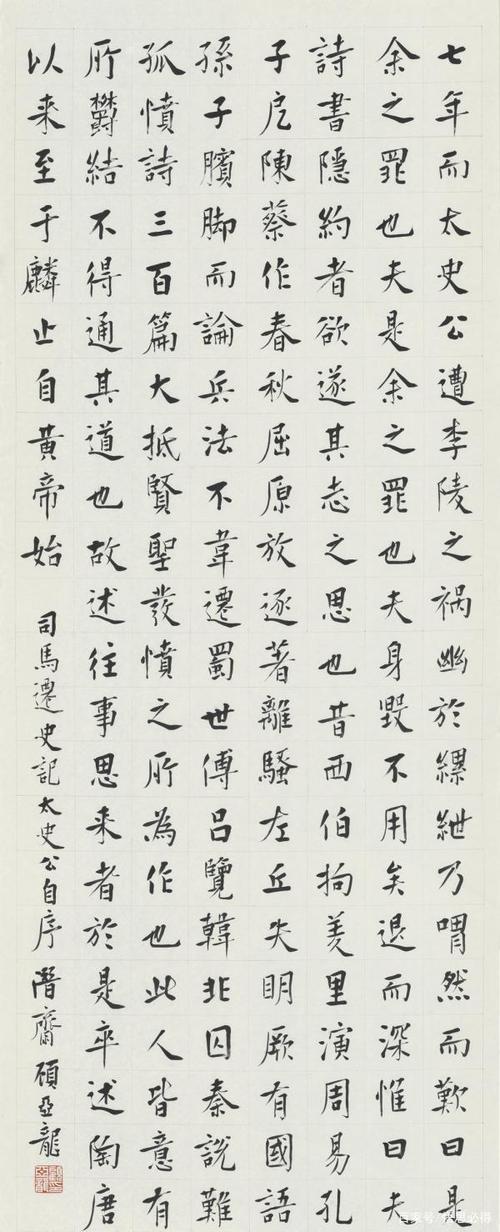 七年而太史公遭李陵之祸幽於縲紲乃喟然而歎曰是
余之罪也夫是余之罪也夫身毀不用矣退而深惟曰夫
詩書隱約者欲遂其志之思也昔西伯拘羑里演周易孔
子戹陳蔡作春秋屈原放逐著離騷左丘失明厥有國語
孫子臏脚而論兵法不韋遷蜀世傳呂覽韓非囚秦說難
孤憤詩三百篇大抵賢聖發憤之所為作也此人皆意有
所鬱結不得通其道也故述往事思来者於是卒述陶唐
以来至于麟止自黄帝始 司馬遷史記太史公自序 潛齋顾亞龍
百家号